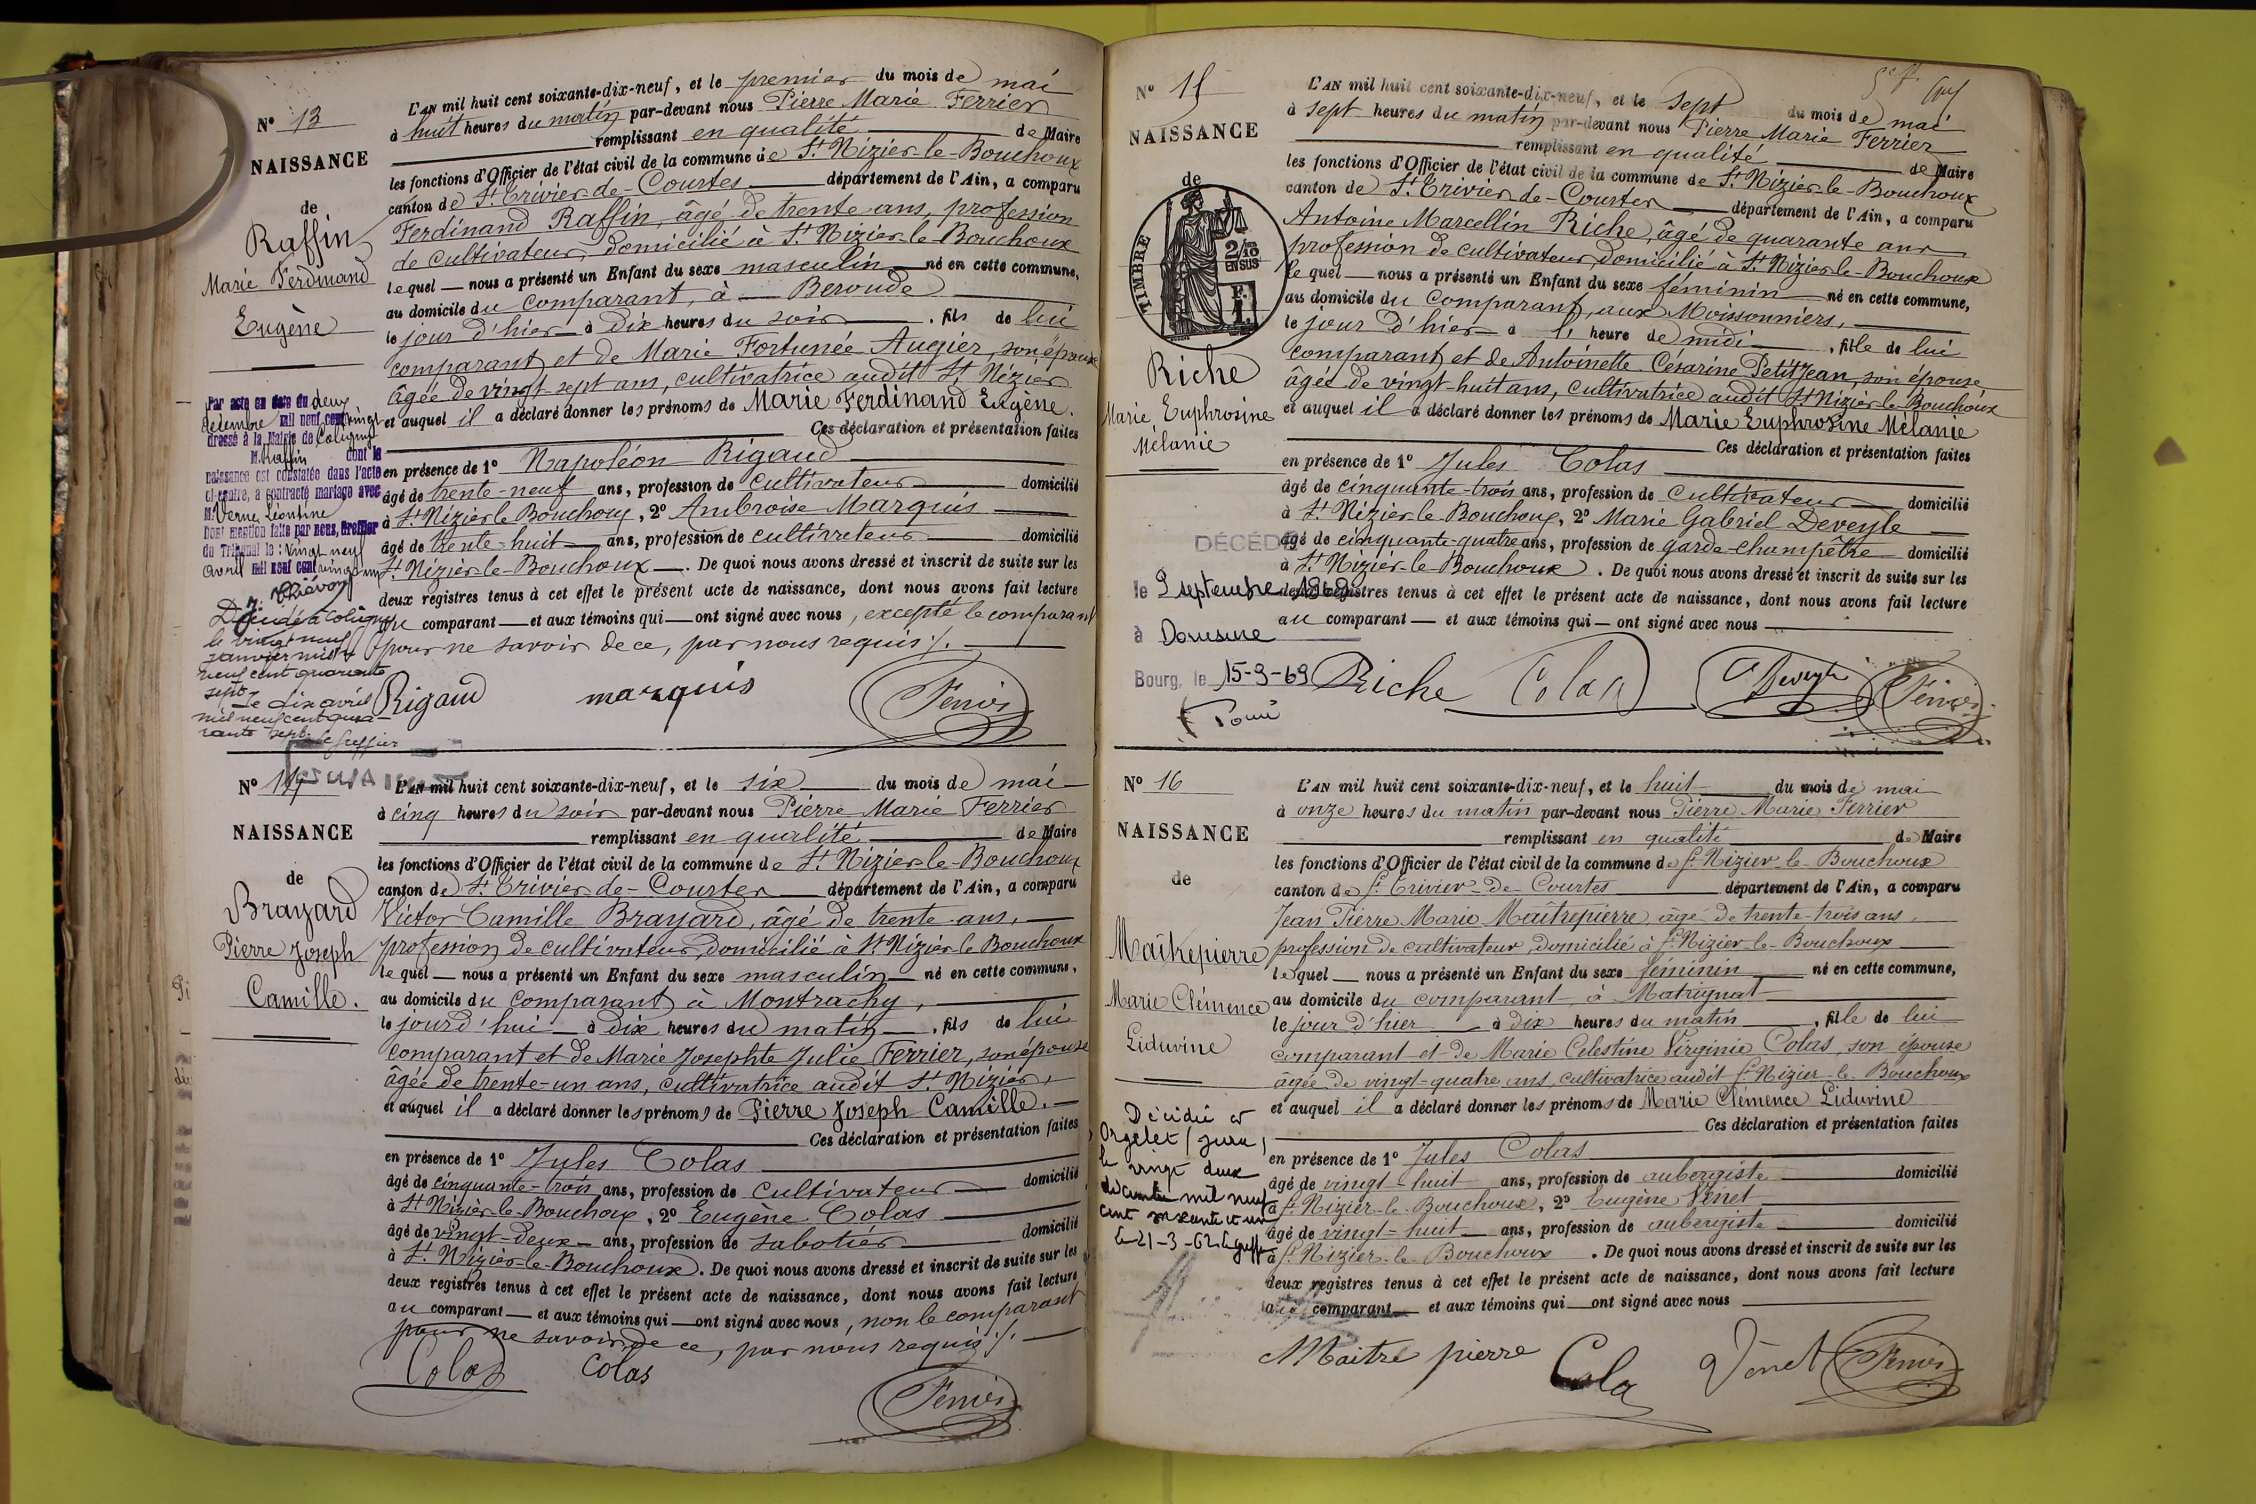 N° 13
NAISSANCE
de
Raffin
Marie Ferdinand
Eugène
Par acte en date du deux
décembre mil neuf cent vingt
dressé à la Mairie de Coligny
M. Raffin dont la
naissance est constatée dans l'acte
ci-contre, a contracté mariage avec
M. Verne Léontine
Dont mention faite par nous, Greffier
du Tribunal le : vingt neuf
avril mil neuf cent vingt un
Décédé à Coligny
le vingt neuf
janvier mil
neuf cent quarante
sept. Le dix avril
mil neuf cent qua-
rante sept. Le Greffier
L'AN mil huit cent soixante-dix-neuf, et le premier du mois de mai
à huit heures du matin par-devant nous Pierre Marie Ferrier
remplissant en qualité de Maire
les fonctions d'Officier de l'état civil de la commune de St Nizier-le-Bouchoux
canton de St Trivier-de-Courtes département de l'Ain, a comparu
Ferdinand Raffin, âgé de trente ans, profession
de cultivateur, domicilié à St Nizier-le-Bouchoux
lequel nous a présenté un Enfant du sexe masculin né en cette commune,
au domicile du comparant, à Beroude
le jour d'hier à dix heures du soir, fils de lui
comparant et de Marie Fortunée Augier, son épouse
âgée de vingt-sept ans, cultivatrice audit St Nizier
et auquel il a déclaré donner les prénoms de Marie Ferdinand Eugène.
Ces déclaration et présentation faites
en présence de 1° Napoléon Rigaud
âgé de trente-neuf ans, profession de cultivateur domicilié
à St Nizier le Bouchoux, 2° Ambroise Marquis
âgé de trente-huit ans, profession de cultivateur domicilié
St Nizier-le-Bouchoux. De quoi nous avons dressé et inscrit de suite sur les
deux registres tenus à cet effet le présent acte de naissance, dont nous avons fait lecture
au comparant et aux témoins qui ont signé avec nous, excepté le comparant
pour ne savoir de ce, par nous requis /.
Rigaud marquis Ferrier
N° 14
NAISSANCE
de
Brayard
Pierre Joseph
Camille.
L'AN mil huit cent soixante-dix-neuf, et le six du mois de mai
à cinq heures du soir par-devant nous Pierre Marie Ferrier
remplissant en qualité de Maire
les fonctions d'Officier de l'état civil de la commune de St Nizier-le-Bouchoux
canton de St Trivier-de-Courtes département de l'Ain, a comparu
Victor Camille Brayard, âgé de trente ans,
profession de cultivateur, domicilié à St Nizier le Bouchoux
lequel nous a présenté un Enfant du sexe masculin né en cette commune,
au domicile du comparant à Montrachy,
le jour d'hui à dix heures du matin, fils de lui
comparant et de Marie Josephte Julie Ferrier, son épouse
âgée de trente-un ans, cultivatrice audit St Nizier,
et auquel il a déclaré donner les prénoms de Pierre Joseph Camille.
Ces déclaration et présentation faites
en présence de 1° Jules Colas
âgé de cinquante-trois ans, profession de cultivateur domicilié
à St Nizier-le-Bouchoux, 2° Eugène Colas
âgé de vingt-deux ans, profession de sabotier domicilié
à St Nizier-le-Bouchoux. De quoi nous avons dressé et inscrit de suite sur les
deux registres tenus à cet effet le présent acte de naissance, dont nous avons fait lecture
au comparant et aux témoins qui ont signé avec nous, non le comparant
pour ne savoir de ce, par nous requis /.
Colas Colas Ferrier
N° 15
NAISSANCE
de
TIMBRE
2/10
EN SUS
Riche
Marie Euphrosine
Mélanie
DÉCÉDÉ
le 2 septembre 1969
à Domsure
Bourg, le 15-9-69
L'AN mil huit cent soixante-dix-neuf, et le sept du mois de mai
à sept heures du matin par-devant nous Pierre Marie Ferrier
remplissant en qualité de Maire
les fonctions d'Officier de l'état civil de la commune de St Nizier-le-Bouchoux
canton de St Trivier-de-Courtes département de l'Ain, a comparu
Antoine Marcellin Riche, âgé de quarante ans
profession de cultivateur, domicilié à St Nizier-le-Bouchoux
lequel nous a présenté un Enfant du sexe féminin né en cette commune,
au domicile du comparant, aux Moissonniers,
le jour d'hier à l' heure de midi, fille de lui
comparant et de Antoinette Césarine Petitjean, son épouse
âgée de vingt-huit ans, cultivatrice audit St Nizier-le-Bouchoux
et auquel il a déclaré donner les prénoms de Marie Euphrosine Mélanie
Ces déclaration et présentation faites
en présence de 1° Jules Colas
âgé de cinquante-trois ans, profession de cultivateur domicilié
à St Nizier-le-Bouchoux, 2° Marie Gabriel Deveyle
âgé de cinquante-quatre ans, profession de garde-champêtre domicilié
à St Nizier-le-Bouchoux. De quoi nous avons dressé et inscrit de suite sur les
deux registres tenus à cet effet le présent acte de naissance, dont nous avons fait lecture
au comparant et aux témoins qui ont signé avec nous
Riche Colas Deveyle Ferrier
N° 16
NAISSANCE
de
Maîtrepierre
Marie Clémence
Liduvine
Décédée à
Orgelet (Jura)
le vingt deux
décembre mil neuf
cent soixante et un
le 21-3-62 le greffier
L'AN mil huit cent soixante-dix-neuf, et le huit du mois de mai
à onze heures du matin par-devant nous Pierre Marie Ferrier
remplissant en qualité de Maire
les fonctions d'Officier de l'état civil de la commune de St Nizier le Bouchoux
canton de St Trivier-de-Courtes département de l'Ain, a comparu
Jean Pierre Marie Maîtrepierre, âgé de trente-trois ans,
profession de cultivateur, domicilié à St Nizier-le-Bouchoux
lequel nous a présenté un Enfant du sexe féminin né en cette commune,
au domicile du comparant, à Matrignat
le jour d'hier à dix heures du matin, fille de lui
comparant et de Marie Celestine Virginie Colas, son épouse
âgée de vingt-quatre ans, cultivatrice audit St Nizier-le-Bouchoux
et auquel il a déclaré donner les prénoms de Marie Clémence Liduvine
Ces déclaration et présentation faites
en présence de 1° Jules Colas
âgé de vingt-huit ans, profession de aubergiste domicilié
à St Nizier-le-Bouchoux, 2° Eugène Vénet
âgé de vingt-huit ans, profession de aubergiste domicilié
à St Nizier-le-Bouchoux. De quoi nous avons dressé et inscrit de suite sur les
deux registres tenus à cet effet le présent acte de naissance, dont nous avons fait lecture
au comparant et aux témoins qui ont signé avec nous
Maitre pierre Cola Vénet Ferrier